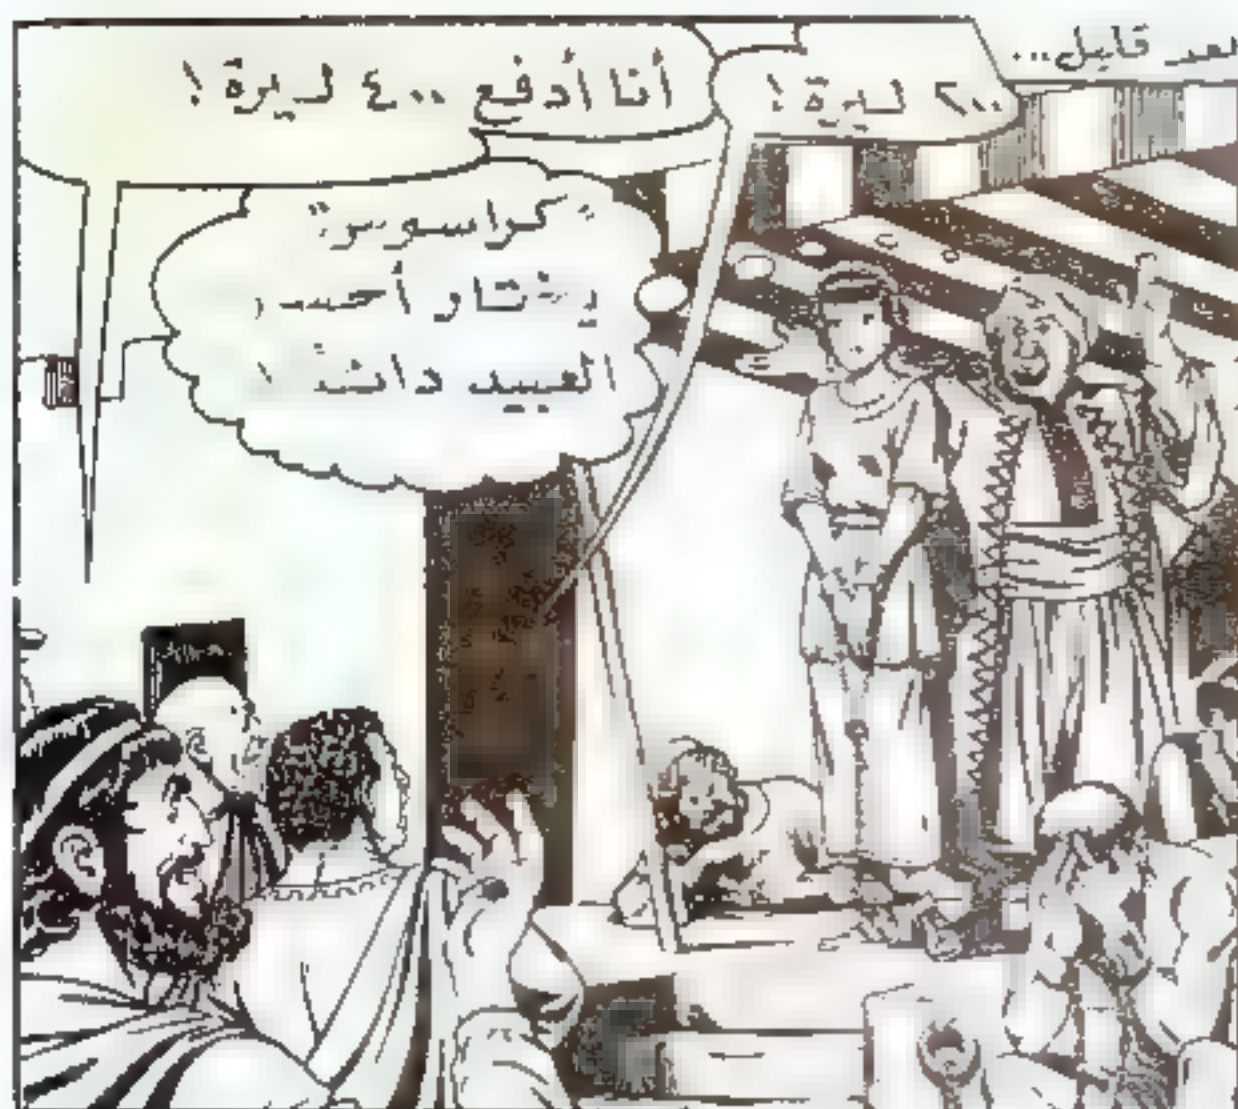 بعد قليل...
٢٠٠ ليرة !
أنا أدفع ٤٠٠ ليرة !
"كراسوس"
يختار أحسن
العبيد دائماً !